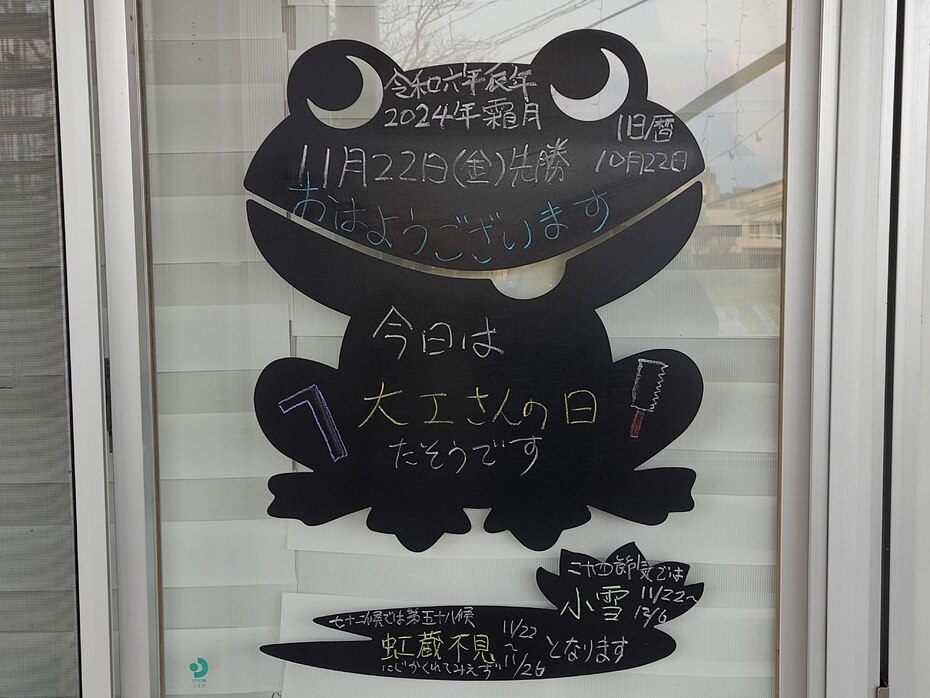 令和六年辰年
2024年霜月
旧暦
11月22日(金)先勝
10月22日
おはようございます
今日は
大工さんの日
だそうです
二十四節気では
小雪 11/22～
12/6
七十二候では第五十八候
虹蔵不見 11/22～11/26 となります
にじかくれてみえず